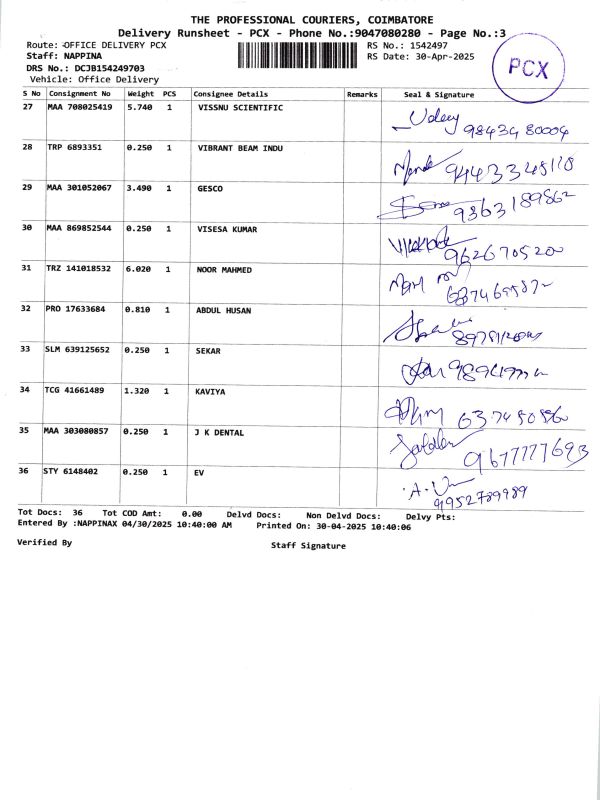 THE PROFESSIONAL COURIERS, COIMBATORE
Delivery Runsheet - PCX - Phone No.:9047080280 - Page No.:3
Route: OFFICE DELIVERY PCX RS No.: 1542497
Staff: NAPPINA RS Date: 30-Apr-2025
DRS No.: DCJB154249703
Vehicle: Office Delivery
PCX
S No Consignment No Weight PCS Consignee Details Remarks Seal & Signature
27 MAA 708025419 5.740 1 VISSNU SCIENTIFIC
Udey 9843480004
28 TRP 6893351 0.250 1 VIBRANT BEAM INDU
29 MAA 301052067 3.490 1 GESCO
9363189862
30 MAA 869852544 0.250 1 VISESA KUMAR
9626705200
31 TRZ 141018532 6.020 1 NOOR MAHMED
32 PRO 17633684 0.810 1 ABDUL HUSAN
33 SLM 639125652 0.250 1 SEKAR
34 TCG 41661489 1.320 1 KAVIYA
35 MAA 303080857 0.250 1 J K DENTAL
9677777693
36 STY 6148402 0.250 1 EV
9952789989
Tot Docs: 36 Tot COD Amt: 0.00 Delvd Docs: Non Delvd Docs: Delvy Pts:
Entered By :NAPPINAX 04/30/2025 10:40:00 AM Printed On: 30-04-2025 10:40:06
Verified By Staff Signature